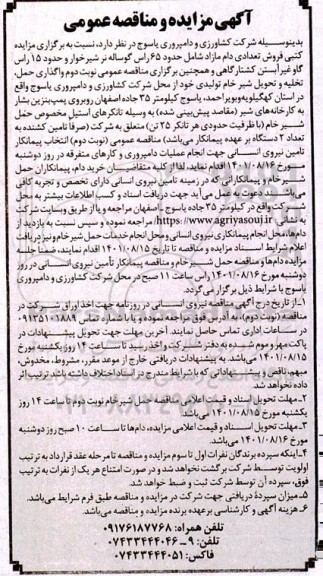 آگهی مزایده و مناقصه عمومی
بدینوسیله شرکت کشاورزی و دامپروری یاسوج در نظر دارد، نسبت به برگزاری مزایده
کتبی فروش تعدادی دام مازاد شامل حدود ۶۵ راس گوساله نر شیرخوار و حدود ۱۵ راس
گاو غیر آبستن کشتارگاهی و همچنین برگزاری مناقصه عمومی نوبت دوم واگذاری حمل،
تخلیه و تحویل شیر خام تولیدی خود از محل شرکت کشاورزی و دامپروری یاسوج واقع
در استان کهگیلویه وبویراحمد، یاسوج کیلومتر ۳۵ جاده اصفهان روبروی پمپ بنزین بشار
به کارخانه‌های شیر (مقاصد پیش‌بینی شده) به وسیله تانکرهای استیل مخصوص حمل
شیر خام (با ظرفیت حدودی هر تانکر ۲۵ تن) متعلق به شرکت (صرفا تامین کشنده به
تعداد ۲ دستگاه بر عهده پیمانکار می‌باشد) مناقصه عمومی (نوبت دوم) انتخاب پیمانکار
تامین نیروی انسانی جهت انجام عملیات دامپروری و کارهای متفرقه در روز دوشنبه
مورخ ۱۴۰۱/۰۸/۱۶ اقدام نماید. لذا از کلیه متقاضیان خرید دام، پیمانکاران حمل
شیر خام و پیمانکارانی که در زمینه تامین نیروی انسانی دارای تخصص و تجربه کافی
می‌باشند دعوت به عمل می‌آید جهت دریافت اسناد و کسب اطلاعات بیشتر به محل
شرکت واقع در کیلومتر ۳۵ جاده یاسوج - اصفهان مراجعه و یا از طریق وبسایت شرکت
به نشانی https://www.agriyasouj.ir مراجعه نموده و سپس نسبت به بازدید از
دام‌ها، محل انجام پیمانکاری نیروی انسانی و محل انجام خدمات حمل شیر خام و نیز دریافت
اعلام شرایط اسناد مزایده و مناقصه تا تاریخ ۱۴۰۱/۰۸/۱۵ اقدام نمایند، ضمنا جلسه
مزایده دام‌ها و مناقصه حمل شیر خام و مناقصه پیمانکار تأمین نیروی انسانی در روز
دوشنبه مورخ ۱۴۰۱/۰۸/۱۶ راس ساعت ۱۱ صبح در محل شرکت کشاورزی و دامپروری
یاسوج با شرایط ذیل برگزار می‌گردد.
۱- از تاریخ درج آگهی مناقصه نیروی انسانی در روزنامه جهت اخذ اوراق شرکت در
مناقصه (نوبت دوم)، به آدرس فوق مراجعه نموده و یا با شماره تماس ۰۹۱۳۵۱۰۱۸۸۹
در ساعات اداری تماس حاصل نمایند. آخرین مهلت جهت تحویل پیشنهادات در
پاکت مهر و موم شده به دفتر شرکت و اخذ رسید تا ساعت ۱۴ روز یکشنبه مورخ
۱۴۰۱/۰۸/۱۵ می‌باشد. به پیشنهادات دریافتی خارج از موعد مقرر، مشروط، مخدوش،
مبهم، ناقص و پیشنهاداتی که با شرایط مندرج در اسناد اختلاف داشته باشد ترتیب اثر
داده نخواهد شد
۲- مهلت تحویل اسناد و قیمت اعلامی مناقصه حمل شیر خام نوبت دوم تا ساعت ۱۴ روز
یکشنبه مورخ ۱۴۰۱/۰۸/۱۵ می‌باشد
۳- مهلت تحویل اسناد و قیمت اعلامی مزایده، دام‌ها تا ساعت ۱۰ صبح روز دوشنبه
مورخ ۱۴۰۱/۰۸/۱۶ می‌باشد.
۴- اینکه سپرده برندگان نفرات اول تا سوم مزایده و مناقصه تا مرحله عقد قرارداد به ترتیب
اولویت توسط شرکت برگشت نخواهد شد و در صورت امتناع هر یک از نفرات به ترتیب
فوق، سپرده آن توسط شرکت ثبت و ضبط خواهد شد.
۵- میزان سپرده دریافتی جهت شرکت در مزایده و مناقصه طبق فرم شرایط می‌باشد.
۶- هزینه آگهی و کارشناسی برعهده برنده مزایده و مناقصه می‌باشد.
تلفن همراه: ۰۹۱۷۶۱۸۷۷۶۸
تلفن: ۹ - ۰۷۴۳۳۴۴۴۰۴۶
فاکس: ۰۷۴۳۳۴۴۴۰۵۱